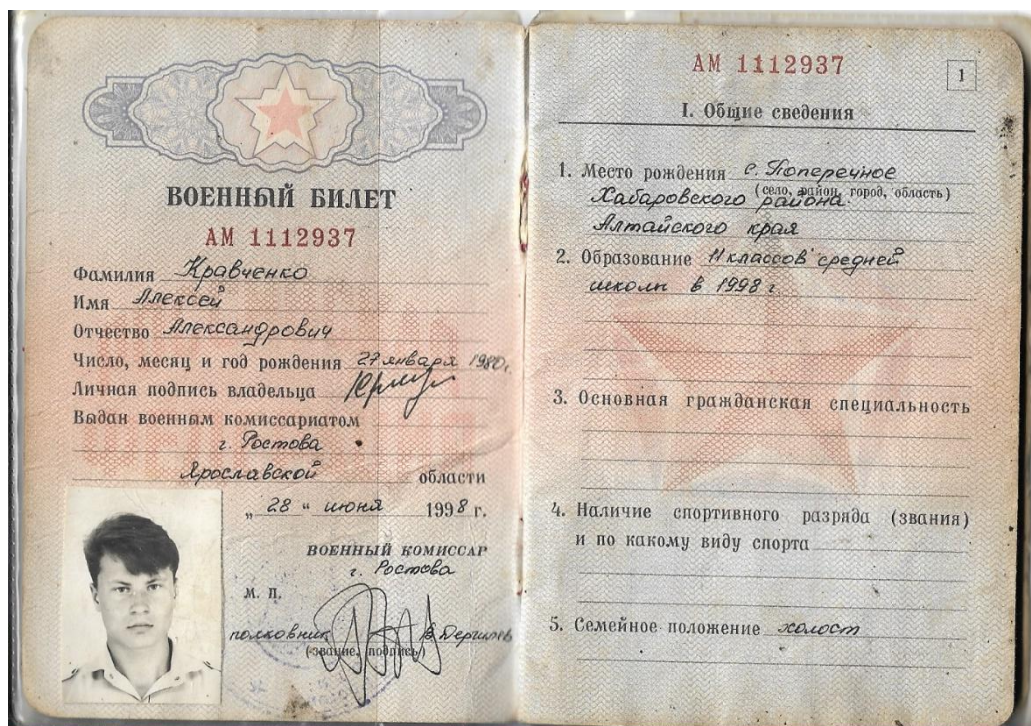 ВОЕННЫЙ БИЛЕТ
АМ 1112937
Фамилия Кравченко
Имя Алексей
Отчество Александрович
Число, месяц и год рождения 27 января 1980г.
Личная подпись владельца
Выдан военным комиссариатом
г. Ростова
Ярославской области
„ 28 “ июня 1998 г.
ВОЕННЫЙ КОМИССАР
г. Ростова
М. П.
полковник В. Дергилев
(звание, подпись)
АМ 1112937
1
I. Общие сведения
1. Место рождения с. Поперечное
(село, район, город, область)
Хабаровского района
Алтайского края
2. Образование 11 классов средней
школы в 1998 г
3. Основная гражданская специальность
4. Наличие спортивного разряда (звания)
и по какому виду спорта
5. Семейное положение холост